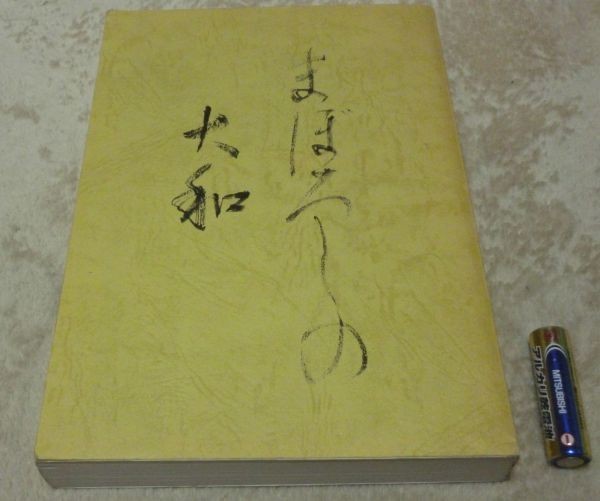 まぼろしの
大和
アルカリ乾電池
MITSUBISHI